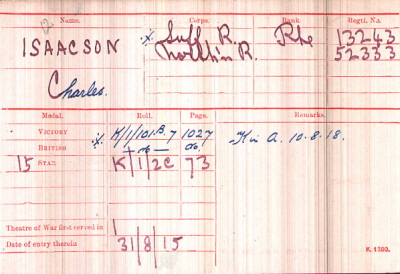 Name. Corps. Rank. Regtl. No.
12
ISAACSON x Suff. R. Pte 13243
North'n R. 52333
Charles.
Medal. Roll. Page. Remarks.
VICTORY x K/1/101.B.7 1027 K in A. 10.8.18.
BRITISH do do.
15 STAR K/1/2C 73
Theatre of War first served in 1
Date of entry therein 31/8/15
K. 1380.